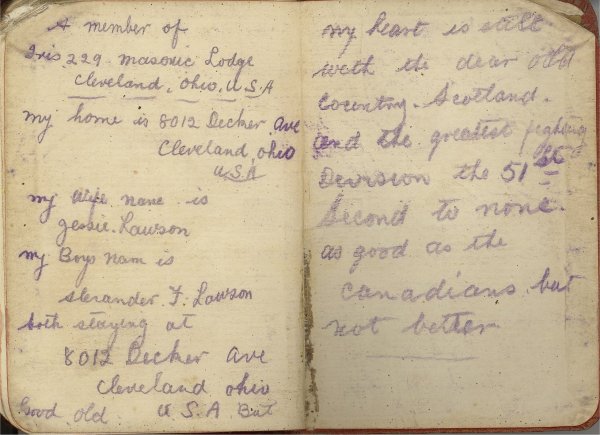 A member of
Iris 229 masonic Lodge
Cleveland, Ohio, U.S.A
my home is 8012 Decker Ave
Cleveland, ohio
U.S.A
my wife name is
Jessie. Lawson
my Boys nam is
Alexander. F. Lawson
both staying at
8012 Decker Ave
Cleveland ohio
Good old U S A But
my heart is still
with the dear old
Country. Scotland.
and the greatest fighting
Division the 51st
Second to none.
as good as the
Canadians but
not better